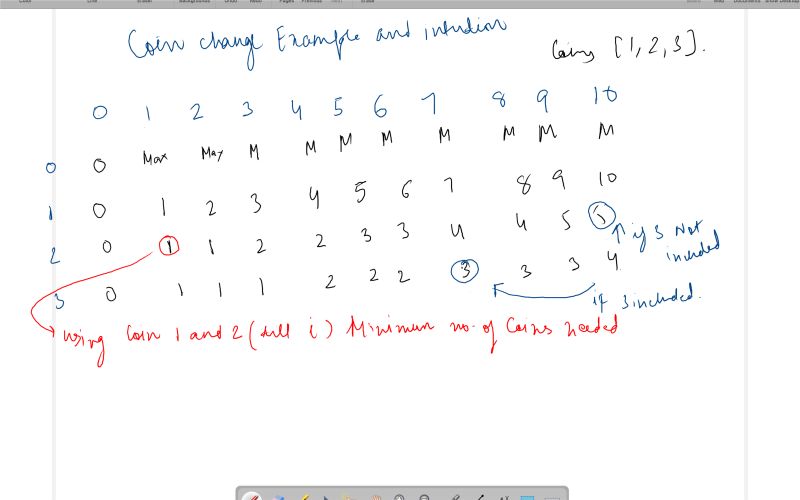 Coin change Example and intution
Coins [1, 2, 3].
0 1 2 3 4 5 6 7 8 9 10
0 0 Max Max M M M M M M M M
1 0 1 2 3 4 5 6 7 8 9 10
2 0 1 1 2 2 3 3 4 4 5 5
↑ if 3 Not included
3 0 1 1 1 2 2 2 3 3 3 4
if 3 included.
using Coin 1 and 2 (till i) Minimum no. of Coins needed